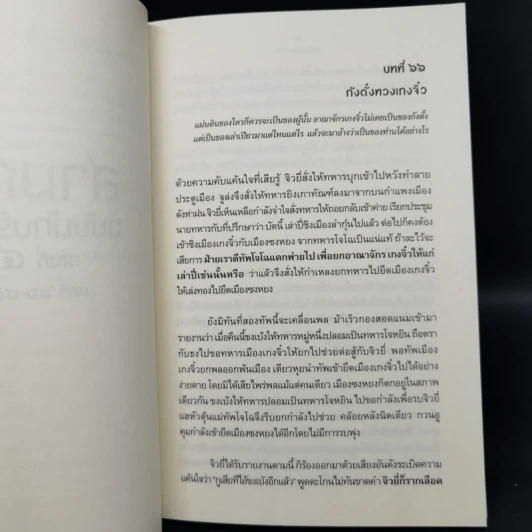 บทที่ ๖๖
กังตั๋งทวงเกงจิ๋ว
แผ่นดินของใครก็ควรจะเป็นของผู้นั้น อาณาจักรเกงจิ๋วไม่เคยเป็นของกังตั๋ง
แต่เป็นของเล่าเปียวมาแต่ไหนแต่ไร แล้วจะมาอ้างว่าเป็นของท่านได้อย่างไร
ด้วยความคับแค้นใจที่เสียรู้ จิวยี่สั่งให้ทหารบุกเข้าไปหวังทำลาย
ประตูเมือง จูล่งจึงสั่งให้ทหารยิงเกาทัณฑ์ลงมาจากบนกำแพงเมือง
ดังห่าฝน จิวยี่เห็นเหลือกำลังจำใจสั่งทหารให้ถอยกลับเข้าค่าย เรียกประชุม
นายทหารกับที่ปรึกษาว่า บัดนี้ เล่าปี่ชิงเมืองลำกุ๋นไปแล้ว ต่อไปก็คงต้อง
เข้าชิงเมืองเกงจิ๋วกับเมืองซงหยง จากทหารโจโฉเป็นแน่แท้ ถ้าละไว้จะ
เสียการ ฝ่ายเราตีทัพโจโฉแตกพ่ายไป เพื่อยกอาณาจักร เกงจิ๋วให้แก่
เล่าปี่เช่นนั้นหรือ ว่าแล้วจึงสั่งให้กำเหลงยกทหารไปยึดเมืองเกงจิ๋ว
ให้เล่งทองไปยึดเมืองซงหยง
ยังมิทันที่สองทัพนี้จะเคลื่อนพล ม้าเร็วกองสอดแนมเข้ามา
รายงานว่า เมื่อคืนนี้ขงเบ้งให้ทหารหมู่หนึ่งปลอมเป็นทหารโจหยิน ถือตรา
กับธงไปขอทหารเมืองเกงจิ๋วให้ยกไปช่วยต่อสู้กับจิวยี่ พอทัพเมือง
เกงจิ๋วยกพลออกพ้นเมือง เตียวหุยนำทัพเข้ายึดเมืองเกงจิ๋วไปได้อย่าง
ง่ายดาย โดยมิได้เสียไพร่พลแม้แต่คนเดียว เมืองซงหยงก็ตกอยู่ในสภาพ
เดียวกัน ขงเบ้งให้ทหารปลอมเป็นทหารโจหยิน ไปขอกำลังเพื่อรบจิวยี่
แฮหัวตุ้นแม่ทัพโจโฉจึงรีบยกกำลังไปช่วย คล้อยหลังนิดเดียว กวนอู
คุมกำลังเข้ายึดเมืองซงหยงได้อีกโดยไม่มีการรบพุ่ง
จิวยี่ได้รับรายงานตามนี้ ก็ร้องออกมาด้วยเสียงอันดังระเบิดความ
แค้นใจว่า "กูเสียทีไอ้ขงเบ้งอีกแล้ว" พูดตะโกนไม่ทันขาดคำ จิวยี่ก็รากเลือด